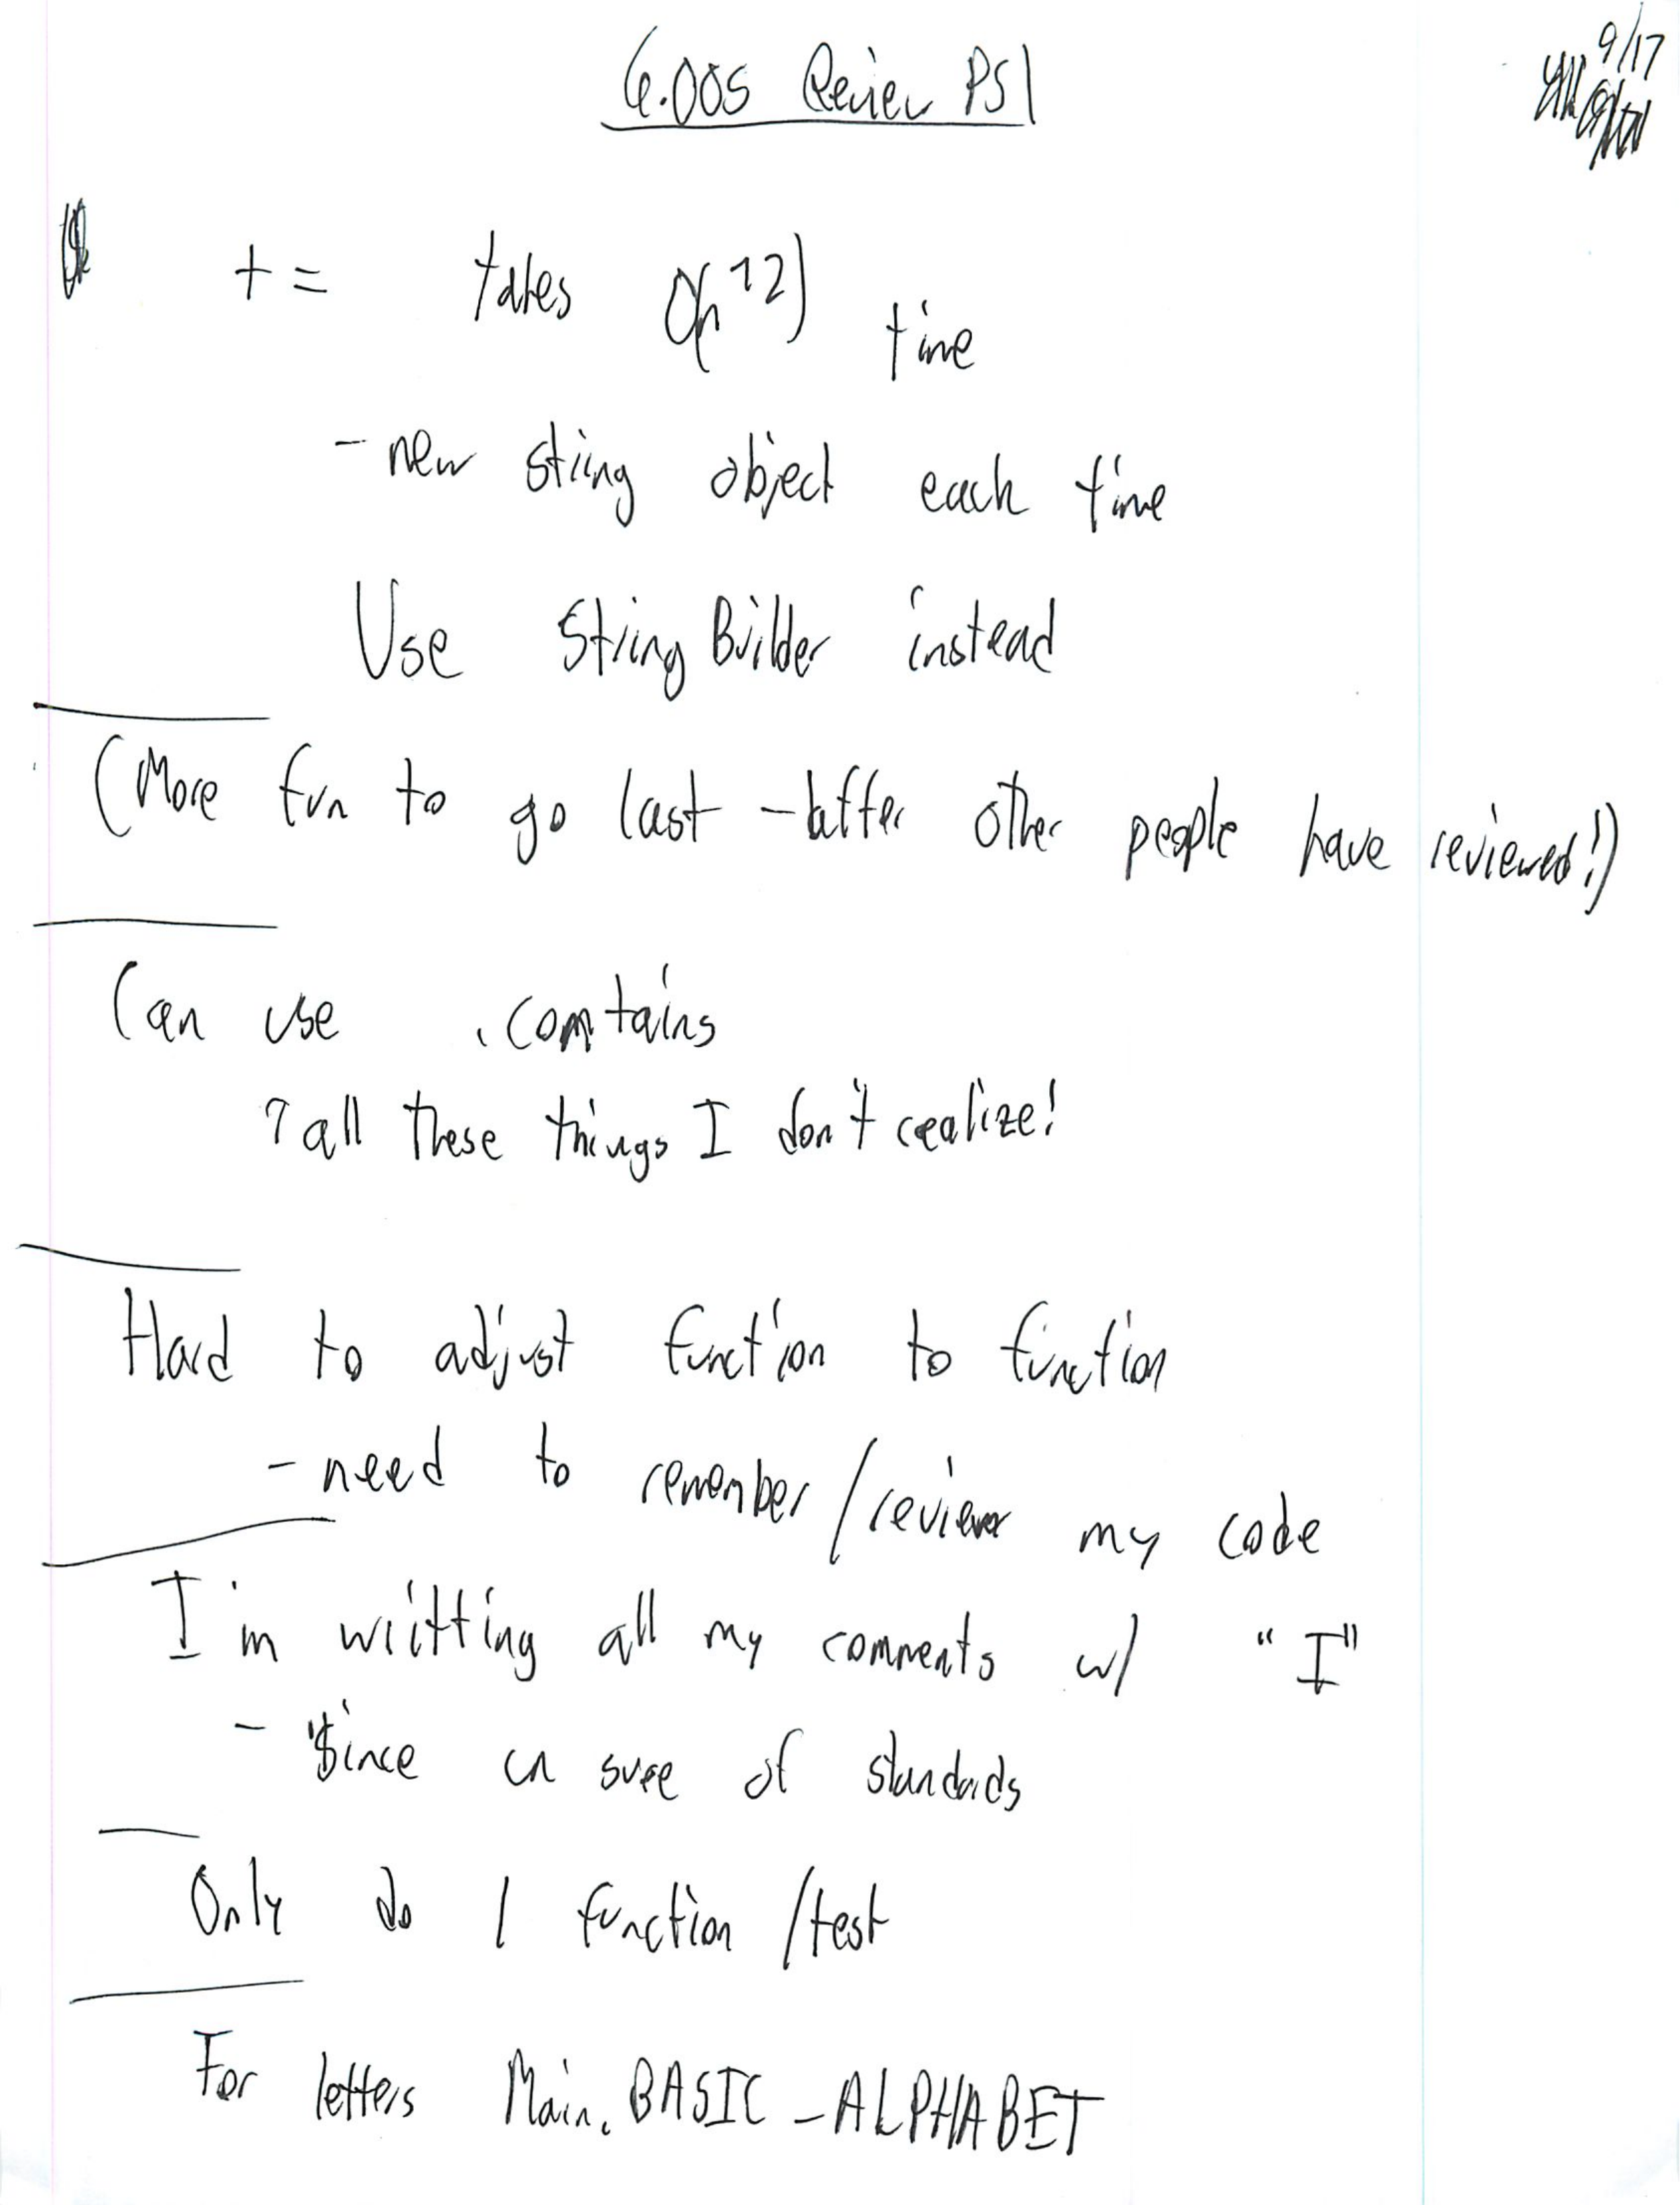 6.005 Review PS1
9/17
+= takes O(n^2) time
- new string object each time
Use StringBuilder instead
(More fun to go last - after other people have reviewed!)
Can use .contains
↑ all these things I don't realize!
Hard to adjust function to function
- need to remember/review my code
I'm writting all my comments w/ "I"
- Since un sure of standards
Only do 1 function /test
For letters Main.BASIC_ALPHABET